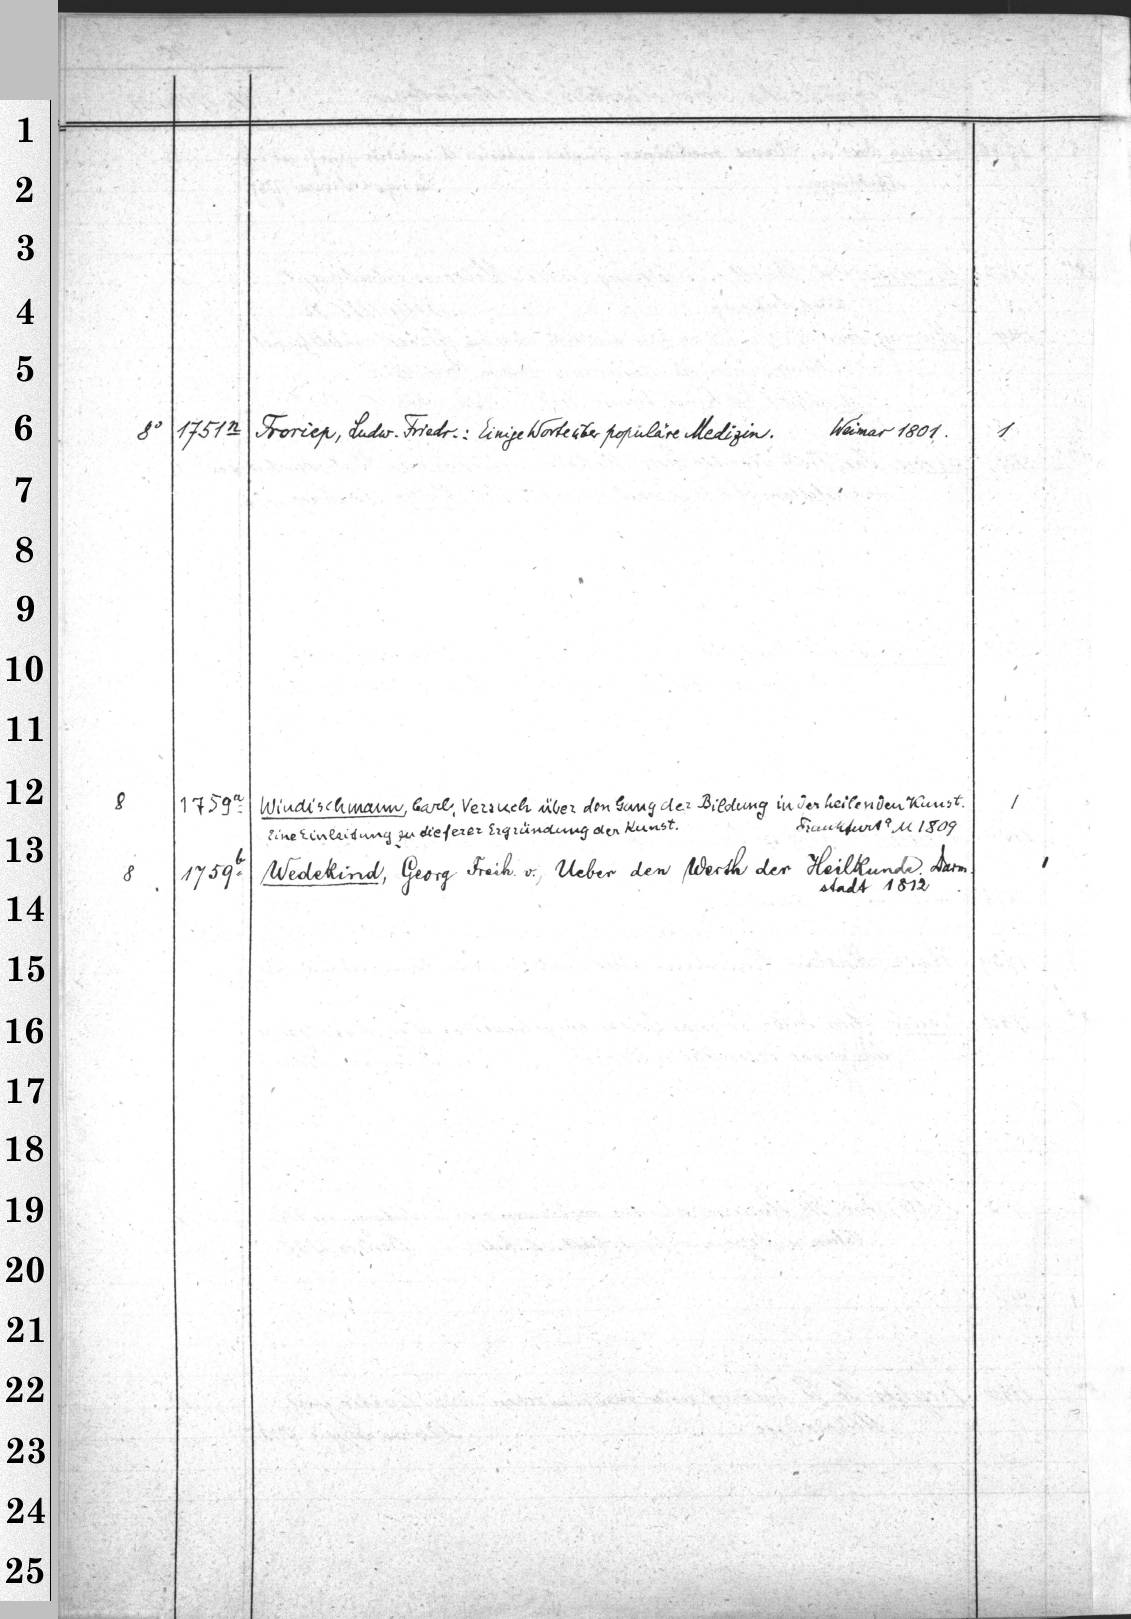 1
2
3
4
5
6
8° 1751n Froriep, Ludw. Friedr.: Einige Worte über populäre Medizin. Weimar 1801. 1
7
8
9
10
11
12
8 1759a Windischmann, Carl, Versuch über den Gang der Bildung in der heilenden Kunst. 1
Eine Einleitung zu dieserer Ergründung der Kunst. Frankfurt a M 1809
13
8 1759b Wedekind, Georg Freih. v., Ueber den Werth der Heilkunde. Darm- 1
stadt 1812
14
15
16
17
18
19
20
21
22
23
24
25